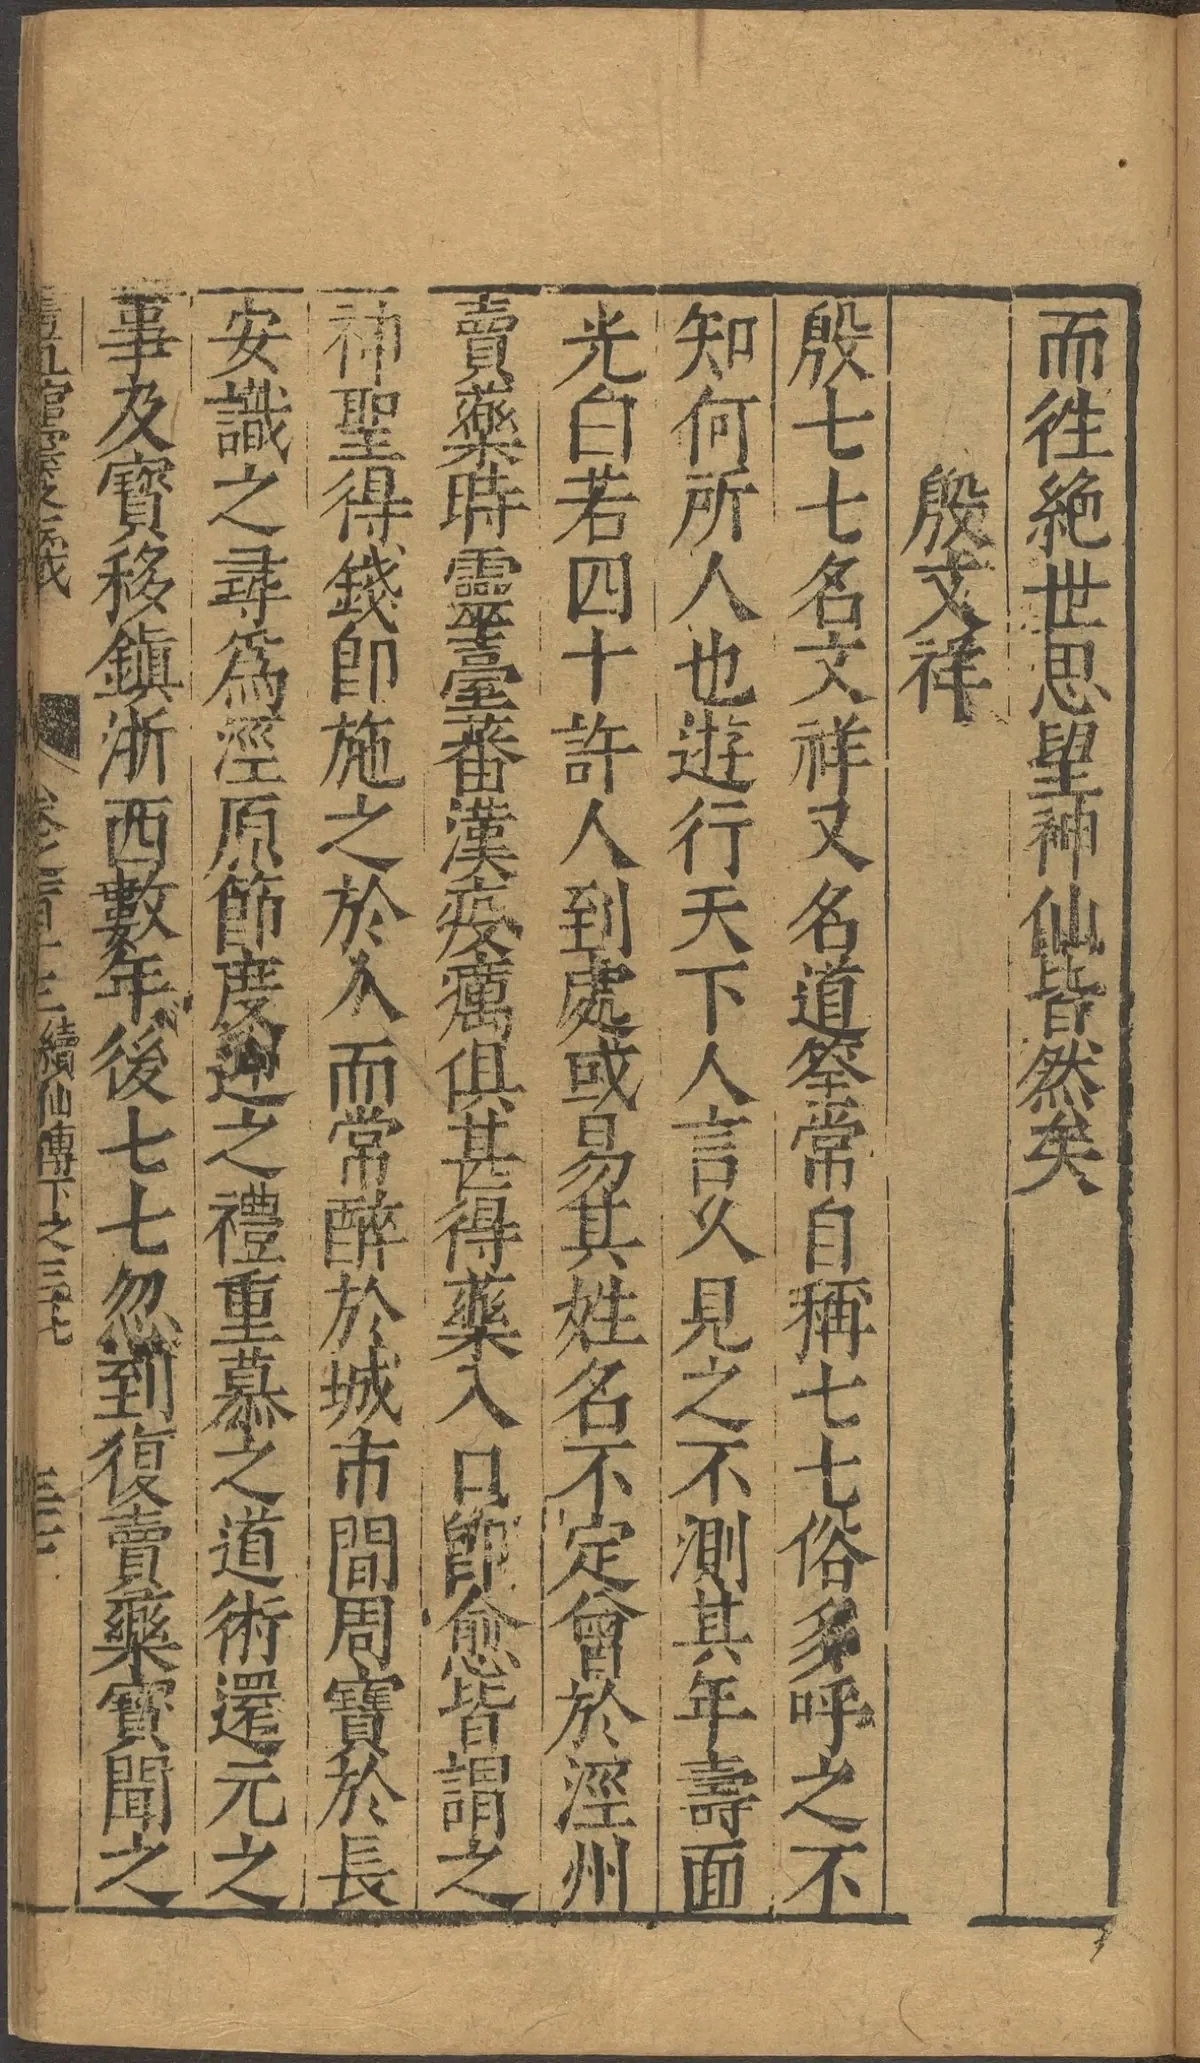 而徃絶世思望神仙皆然矣
殷文祥
殷七七名文祥又名道筌常自稱七七俗多呼之不
知何所人也遊行天下人言久見之不測其年壽面
光白若四十許人到處或易其姓名不定曾於涇州
賣藥時靈臺蕃漢疫癘俱甚得藥入口卽愈皆謂之
神聖得錢卽施之於人而常醉於城市間周寶於長
安識之尋爲涇原節度迎之禮重慕之道術還元之
事及寶移鎮浙西數年後七七忽到復賣藥寶聞之
卷之百十三 續仙傳下之三七